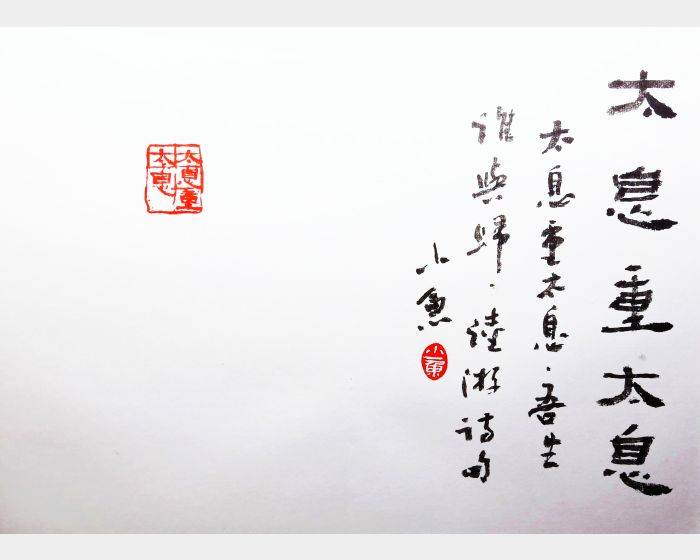 太息重太息
太息重太息·吾生
誰與歸·陸游詩句
小魚
小魚
太息重太息